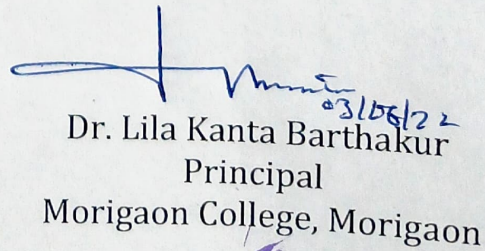 03/06/22
Dr. Lila Kanta Barthakur
Principal
Morigaon College, Morigaon